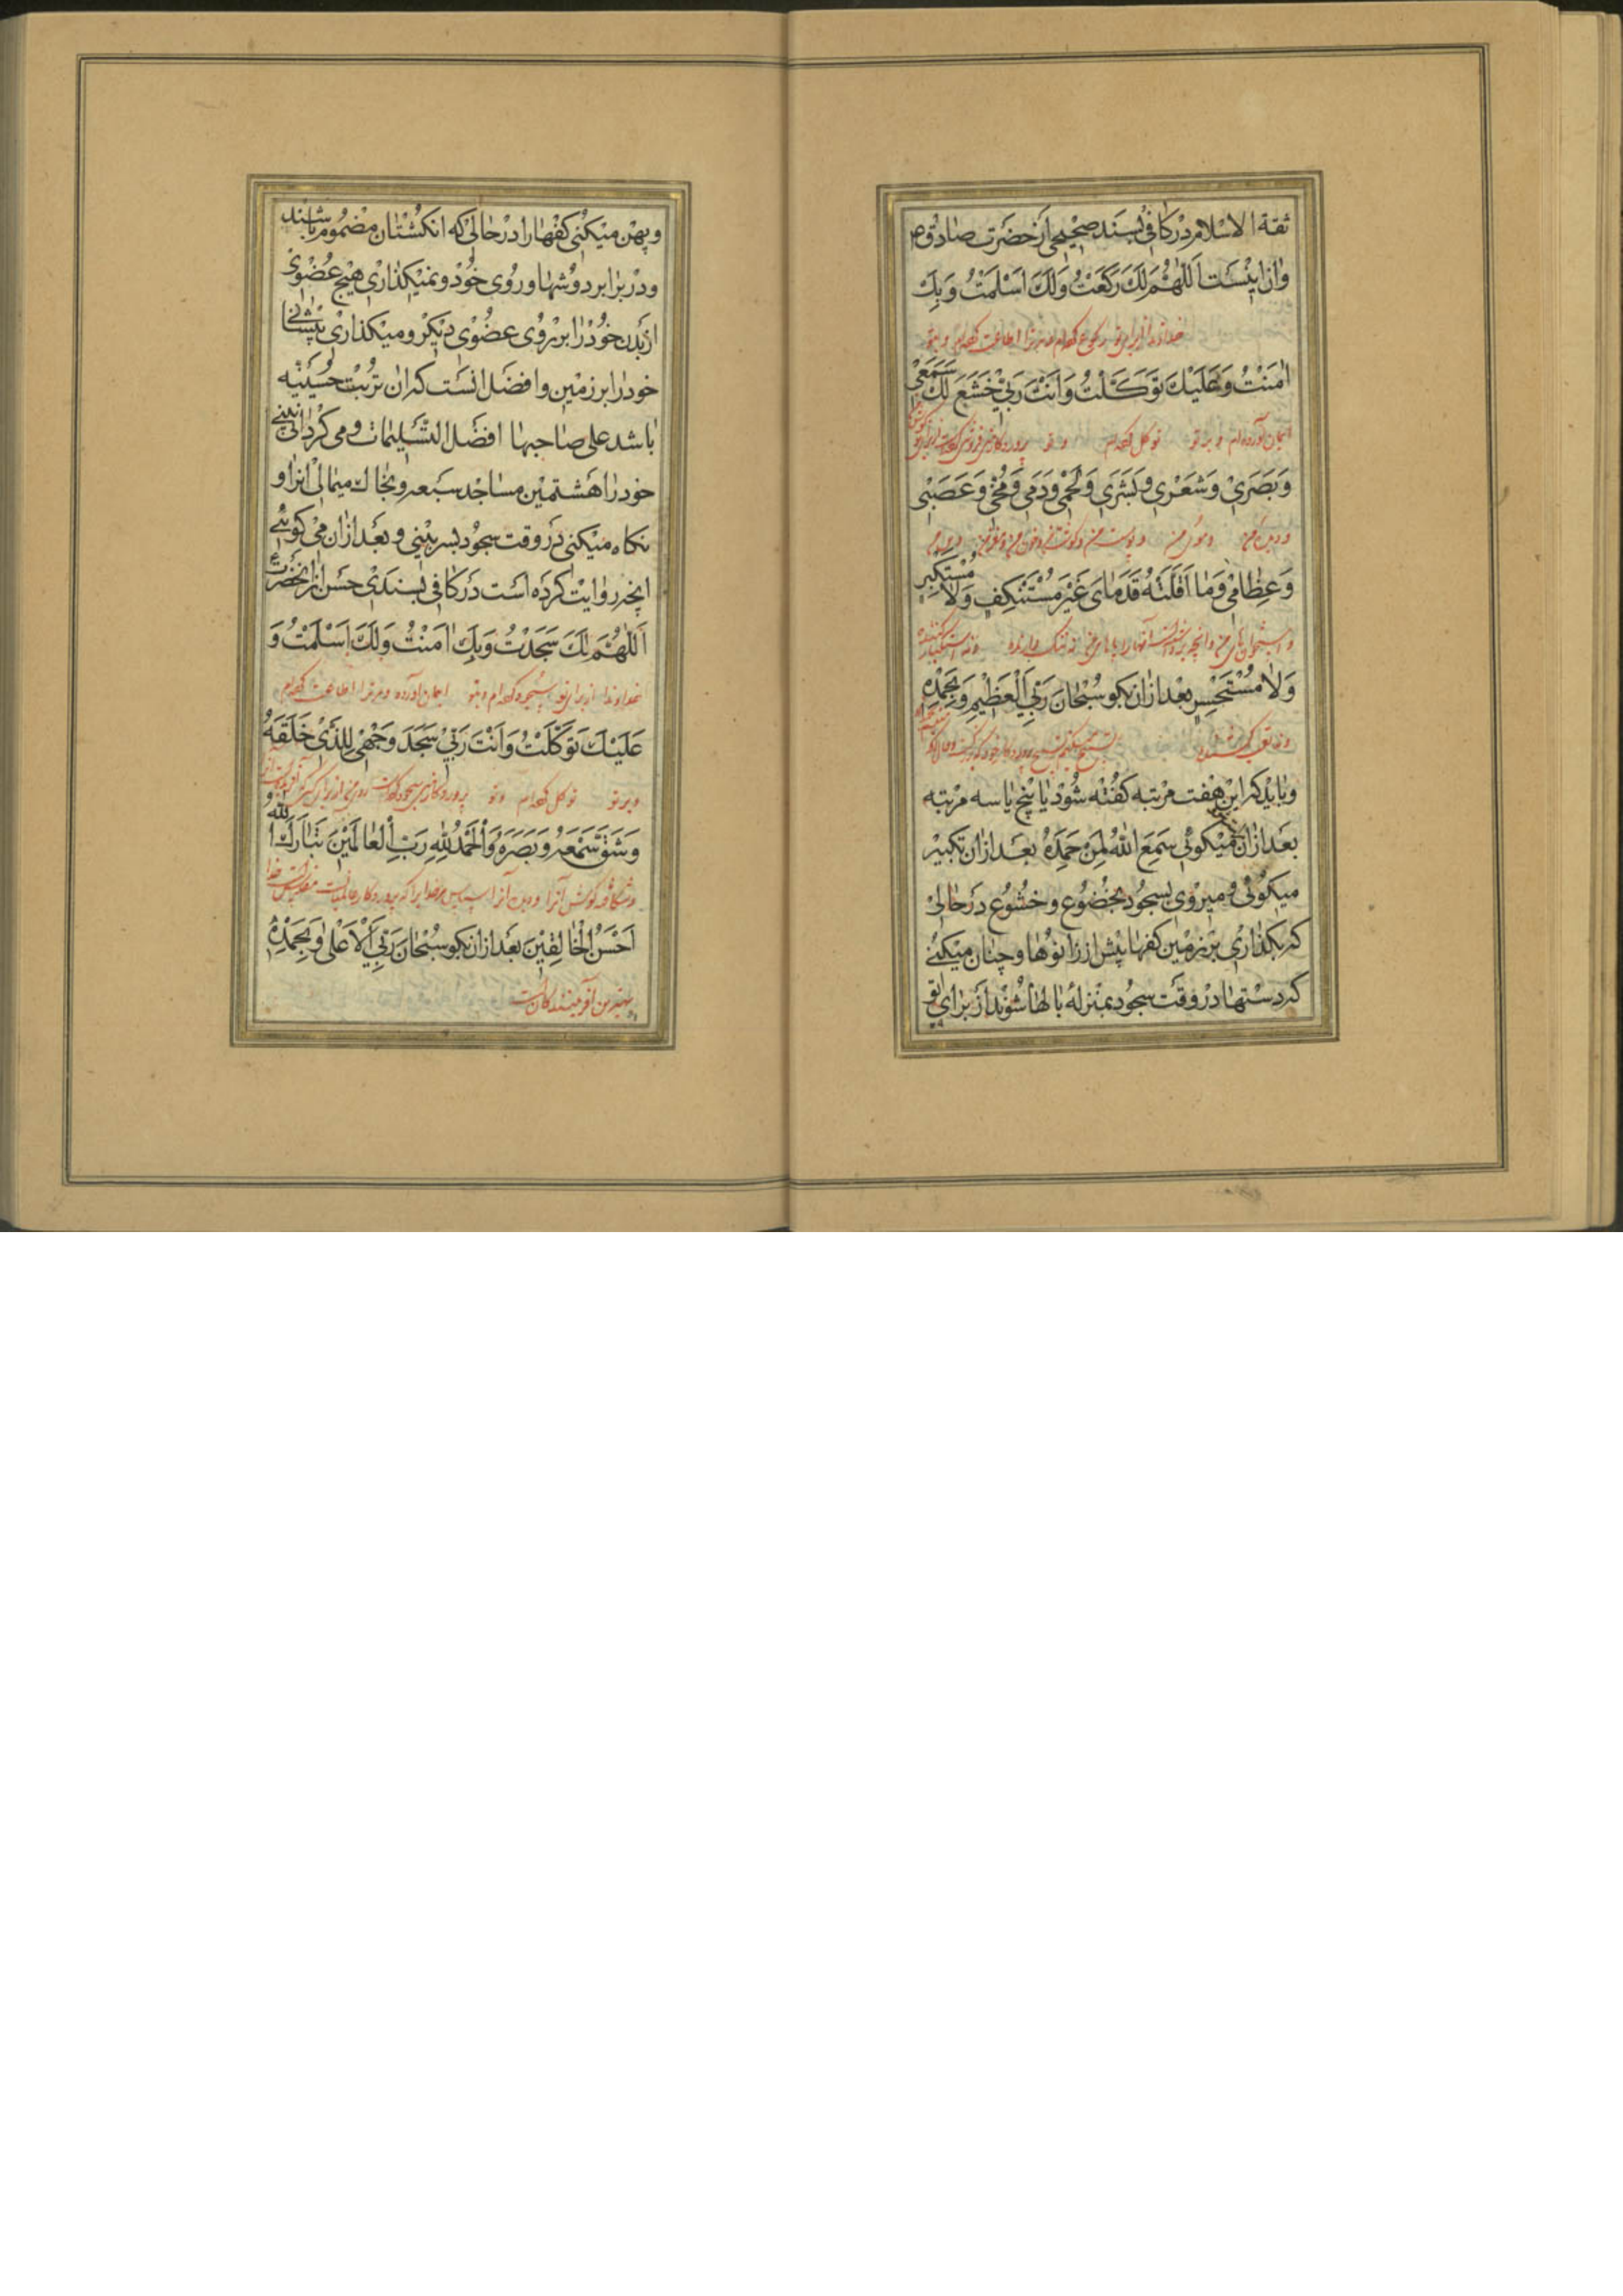 ثقة الاسلام در کافی بسند صحیحی از حضرت صادق ص
وان اینست اَللّٰهُمَّ لَكَ رَكَعْتُ وَلَكَ اَسْلَمْتُ وَبِكَ
خداوندا از برای تو رکوع کرده‌ام و مر ترا اطاعت کرده‌ام و بتو
اٰمَنْتُ وَعَلَيْكَ تَوَكَّلْتُ وَاَنْتَ رَبّي خَشَعَ لَكَ سَمْعي
ایمان آورده‌ام و بر تو توکل کرده‌ام و تو پروردگار منی فروتنی کرده است از برای تو گوش
وَبَصَري وَشَعْري وَبَشَري وَلَحْمي وَدَمي وَمُخّي وَعَصَبي
و دیدن من و موی من و پوست من و گوشت من و خون من و مغز من
وَعِظٰامي وَمٰا اَقَلَّتْهُ قَدَمٰاىَ غَيْرَ مُسْتَنْكِفٍ وَلاٰ مُسْتَكْبِرٍ
و استخوانهای من و آنچه برداشته است آنها را پاهای من نه ننگ دارنده و نه استکبار کننده
وَلاٰ مُسْتَحْسِرٍ بعد ازان بکو سُبْحٰانَ رَبِّيَ الْعَظيمِ وَبِحَمْدِهِ
و باید که این هفت مرتبه کفته شود یا پنج یا سه مرتبه
بعد ازان میکوئی سَمِعَ اللّٰهُ لِمَنْ حَمِدَهُ بعد ازان تکبیر
میکوئی و میروی بسجود بخضوع و خشوع در حالی
که بکذاری بر زمین کفها پیش از زانوها و چنان میکنی
که دستها در وقت سجود بمنزله بالها شوند از برای تو
و پهن میکنی کفها را در حالی که انکشتان مضموم باشند
و در برابر دوشها و روی خود و نمیکذاری هیچ عضوی
از بدن خود را بر روی عضوی دیکر و میکذاری پیشانی
خود را بر زمین و افضل انست که ان تربت حسینیه
باشد علی صاحبها افضل التسلیمات و می کردانی بینی
خود را هشتمین مساجد سبعه و بخاک میمالی انرا و
نکاه میکنی در وقت سجود بسر بینی و بعد ازان می کوئی
انچه روایت کرده است در کافی بسندی حسن از انحضرت ع
اَللّٰهُمَّ لَكَ سَجَدْتُ وَبِكَ اٰمَنْتُ وَلَكَ اَسْلَمْتُ وَ
خداوندا از برای تو سجده کرده‌ام و بتو ایمان آورده و مر ترا اطاعت کرده‌ام
عَلَيْكَ تَوَكَّلْتُ وَاَنْتَ رَبّي سَجَدَ وَجْهي لِلَّذي خَلَقَهُ
و بر تو توکل کرده‌ام و تو پروردگار منی سجده کرده است روی من از برای کسی که آفریده است آنرا
وَشَقَّ سَمْعَهُ وَبَصَرَهُ وَالْحَمْدُ لِلّٰهِ رَبِّ الْعٰالَمينَ تَبٰارَكَ اللّٰهُ
و شکافته گوش آنرا و دیدن آنرا و سپاس مر خدایرا که پروردگار عالمیانست
اَحْسَنُ الْخٰالِقينَ بعد ازان بکو سُبْحٰانَ رَبِّيَ الْاَعْلىٰ وَبِحَمْدِهِ
بهترین آفرینندگان است